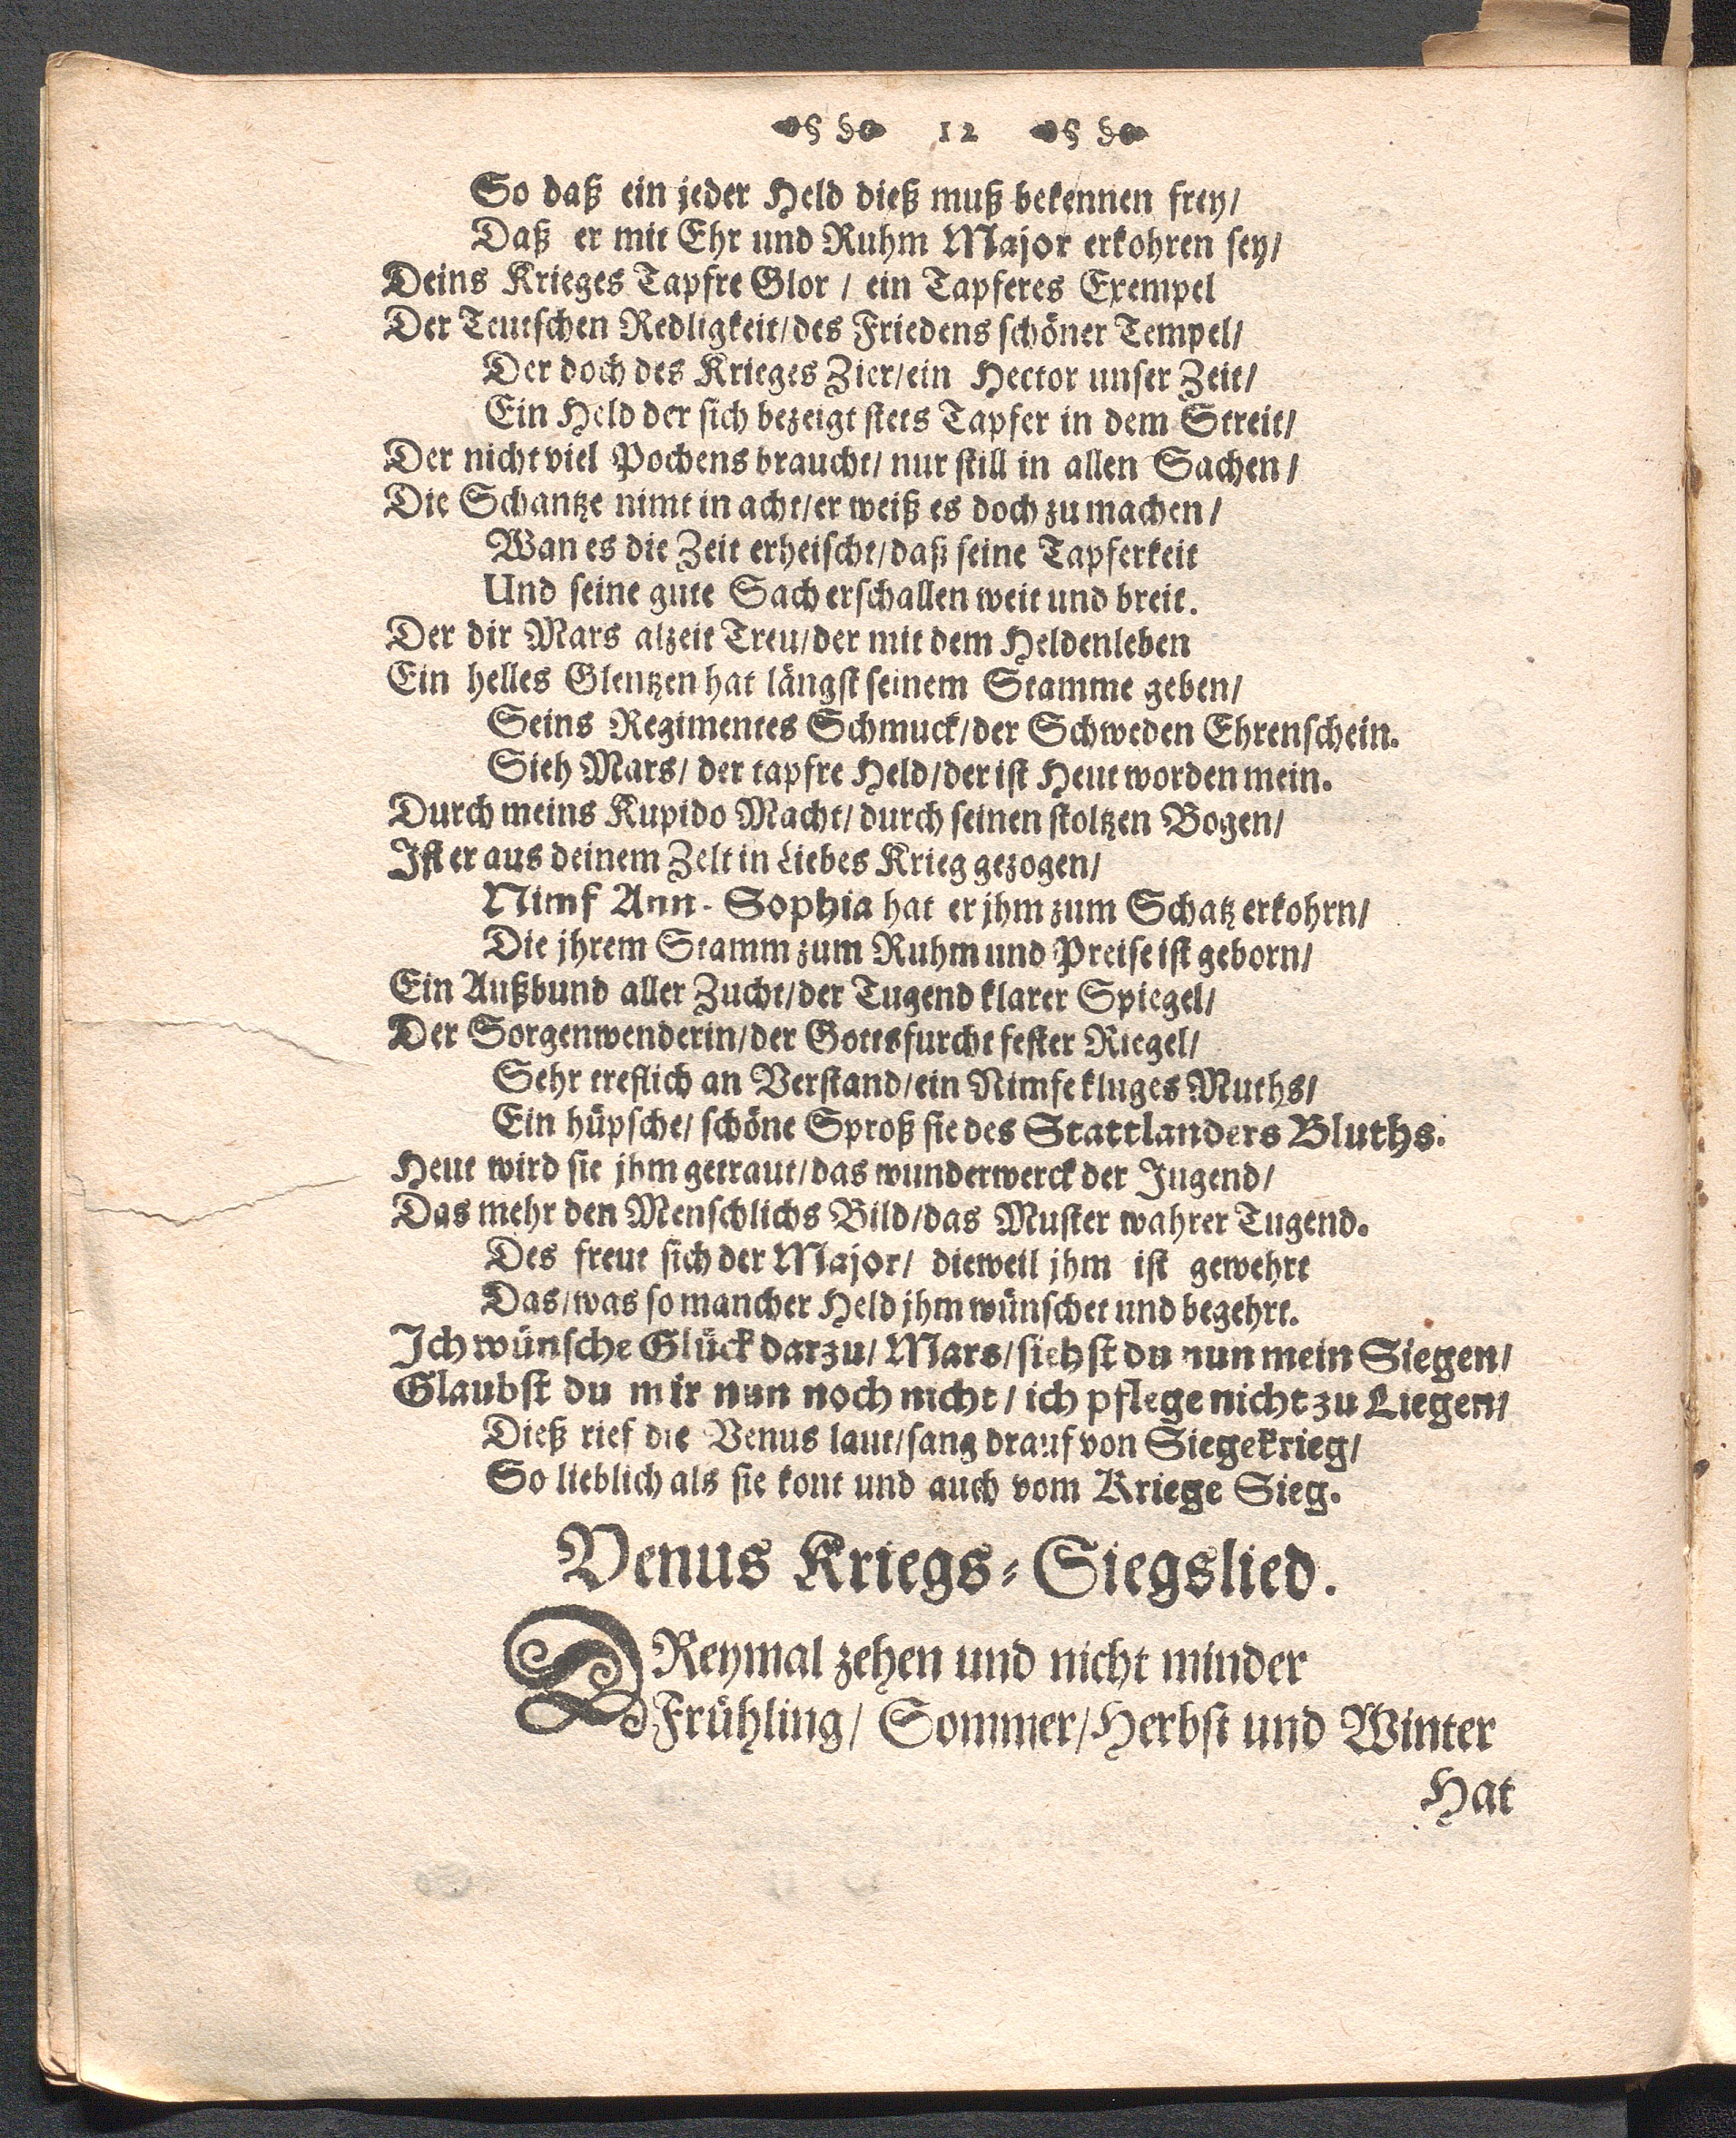 12
So daß ein jeder Held dieß muß bekennen frey/
Daß er mit Ehr und Ruhm Major erkohren sey/
Deins Krieges Tapfre Glor / ein Tapferes Exempel
Der Teutschen Redligkeit/des Friedens schöner Tempel/
Der doch des Krieges Zier/ein Hector unser Zeit/
Ein Held der sich bezeigt stets Tapfer in dem Streit/
Der nicht viel Pochens braucht/ nur still in allen Sachen/
Die Schantze nimt in acht/er weiß es doch zu machen/
Wan es die Zeit erheischt/daß seine Tapferkeit
Und seine gute Sach erschallen weit und breit.
Der dir Mars alzeit Treu/der mit dem Heldenleben
Ein helles Glentzen hat längst seinem Stamme geben/
Seins Regimentes Schmuck/der Schweden Ehrenschein.
Sieh Mars/ der tapfre Held/der ist Heut worden mein.
Durch meins Kupido Macht/ durch seinen stoltzen Bogen/
Ist er aus deinem Zelt in Liebes Krieg gezogen/
Nimf Ann-Sophia hat er jhm zum Schatz erkohrn/
Die jhrem Stamm zum Ruhm und Preise ist geborn/
Ein Außbund aller Zucht/der Tugend klarer Spiegel/
Der Sorgenwenderin/der Gottesfurcht fester Riegel/
Sehr treflich an Verstand/ein Nimfe kluges Muths/
Ein hüpsche/ schöne Sproß sie des Stattlanders Bluths.
Heut wird sie jhm getraut/das wunderwerck der Jugend/
Das mehr den Menschlichs Bild/das Muster wahrer Tugend.
Des freut sich der Major/ dieweil jhm ist gewehrt
Das/was so mancher Held jhm wünschet und begehrt.
Ich wünsche Glück darzu/ Mars/siehst du nun mein Siegen/
Glaubst du mir nun noch nicht/ ich pflege nicht zu Liegen/
Dieß rief die Venus laut/sang drauf von Siegekrieg/
So lieblich als sie kont und auch vom Kriege Sieg.
Venus Kriegs-Siegslied.
DReymal zehen und nicht minder
Frühling/ Sommer/Herbst und Winter
Hat